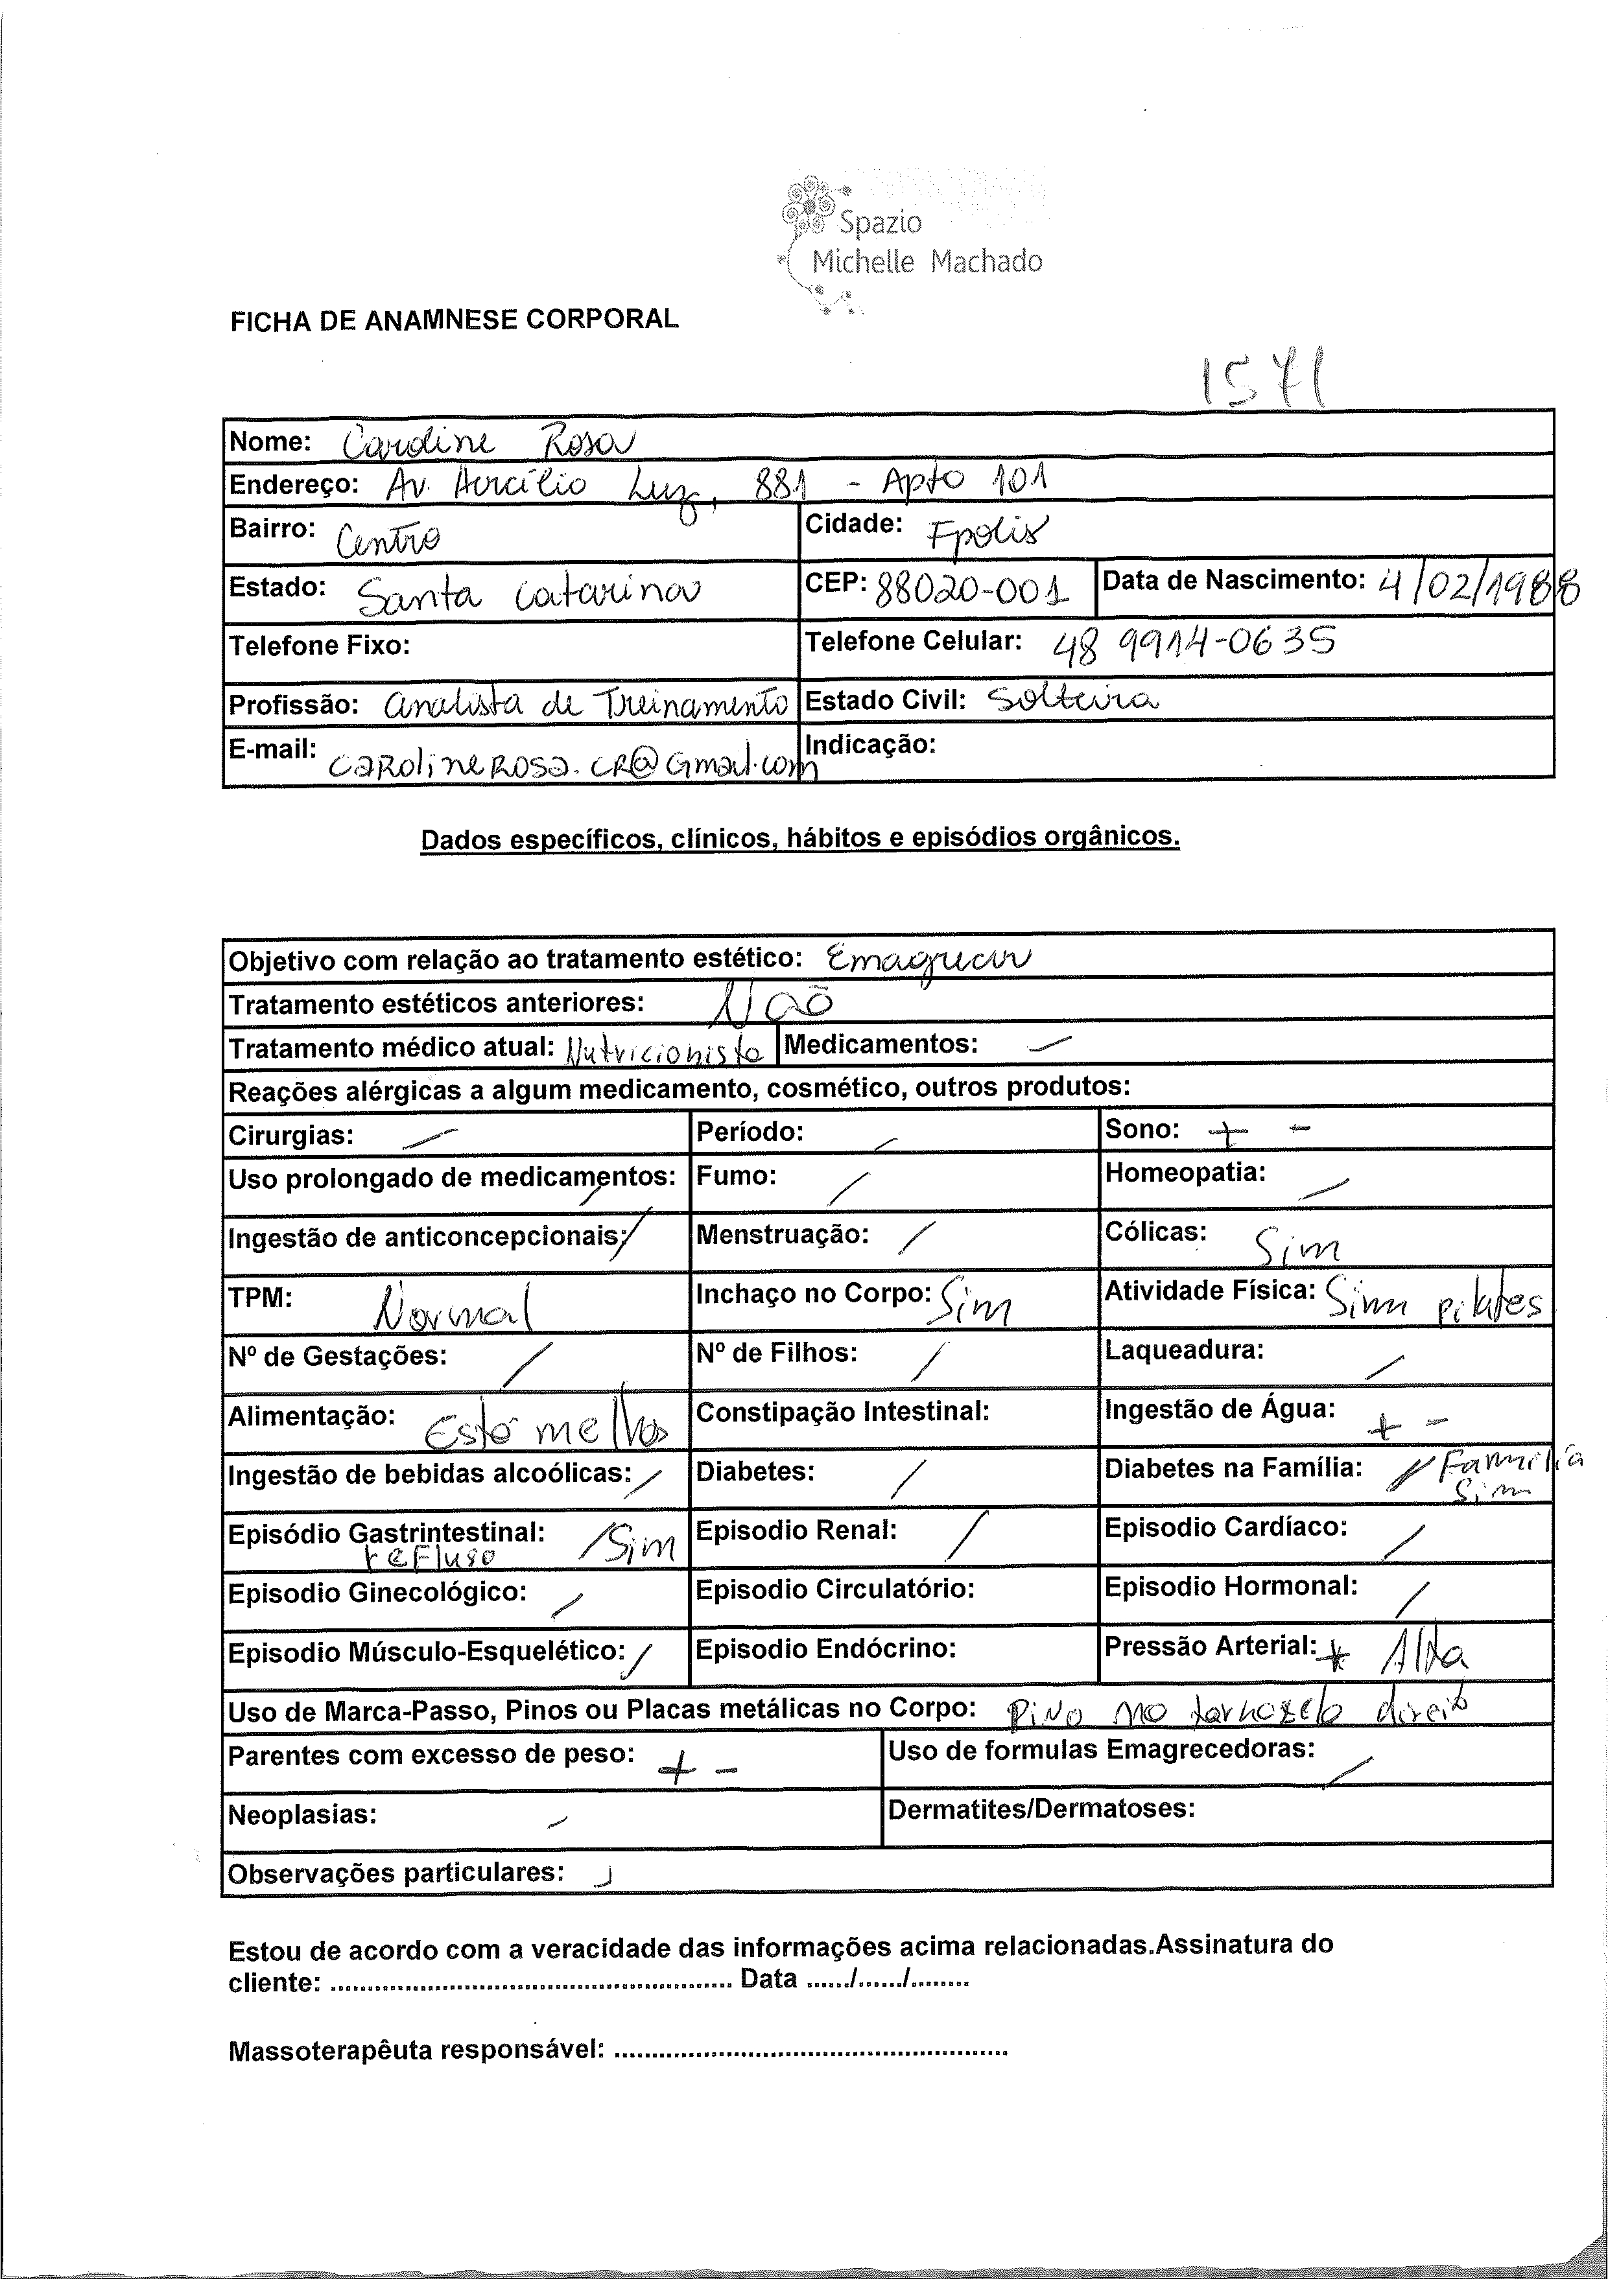 Spazio
Michelle Machado
FICHA DE ANAMNESE CORPORAL
1571
Nome: Caroline Rosa
Endereço: Av. Hercílio Luz, 881 - Apto 101
Bairro: Centro Cidade: Fpolis
Estado: Santa Catarina CEP: 88020-001 Data de Nascimento: 4/02/1988
Telefone Fixo: Telefone Celular: 48 9914-0635
Profissão: Analista de Treinamento Estado Civil: Solteira
E-mail: carolinerosa.cr@gmail.com Indicação:
Dados específicos, clínicos, hábitos e episódios orgânicos.
Objetivo com relação ao tratamento estético: Emagrecer
Tratamento estéticos anteriores: Não
Tratamento médico atual: Nutricionista Medicamentos: —
Reações alérgicas a algum medicamento, cosmético, outros produtos:
Cirurgias: — Período: — Sono: + -
Uso prolongado de medicamentos: / Fumo: / Homeopatia: /
Ingestão de anticoncepcionais: / Menstruação: / Cólicas: Sim
TPM: Normal Inchaço no Corpo: Sim Atividade Física: Sim pilates
Nº de Gestações: / Nº de Filhos: / Laqueadura: /
Alimentação: Está melhor Constipação Intestinal: Ingestão de Água: + -
Ingestão de bebidas alcoólicas: / Diabetes: / Diabetes na Família: / Familia
Sim
Episódio Gastrintestinal: / Sim Episodio Renal: / Episodio Cardíaco: /
refluso
Episodio Ginecológico: / Episodio Circulatório: Episodio Hormonal: /
Episodio Músculo-Esquelético: / Episodio Endócrino: Pressão Arterial: + Alta
Uso de Marca-Passo, Pinos ou Placas metálicas no Corpo: Pino no tornozelo direito
Parentes com excesso de peso: + - Uso de formulas Emagrecedoras: /
Neoplasias: / Dermatites/Dermatoses:
Observações particulares:
Estou de acordo com a veracidade das informações acima relacionadas.Assinatura do
cliente: ........................................................ Data ....../....../........
Massoterapêuta responsável: ......................................................